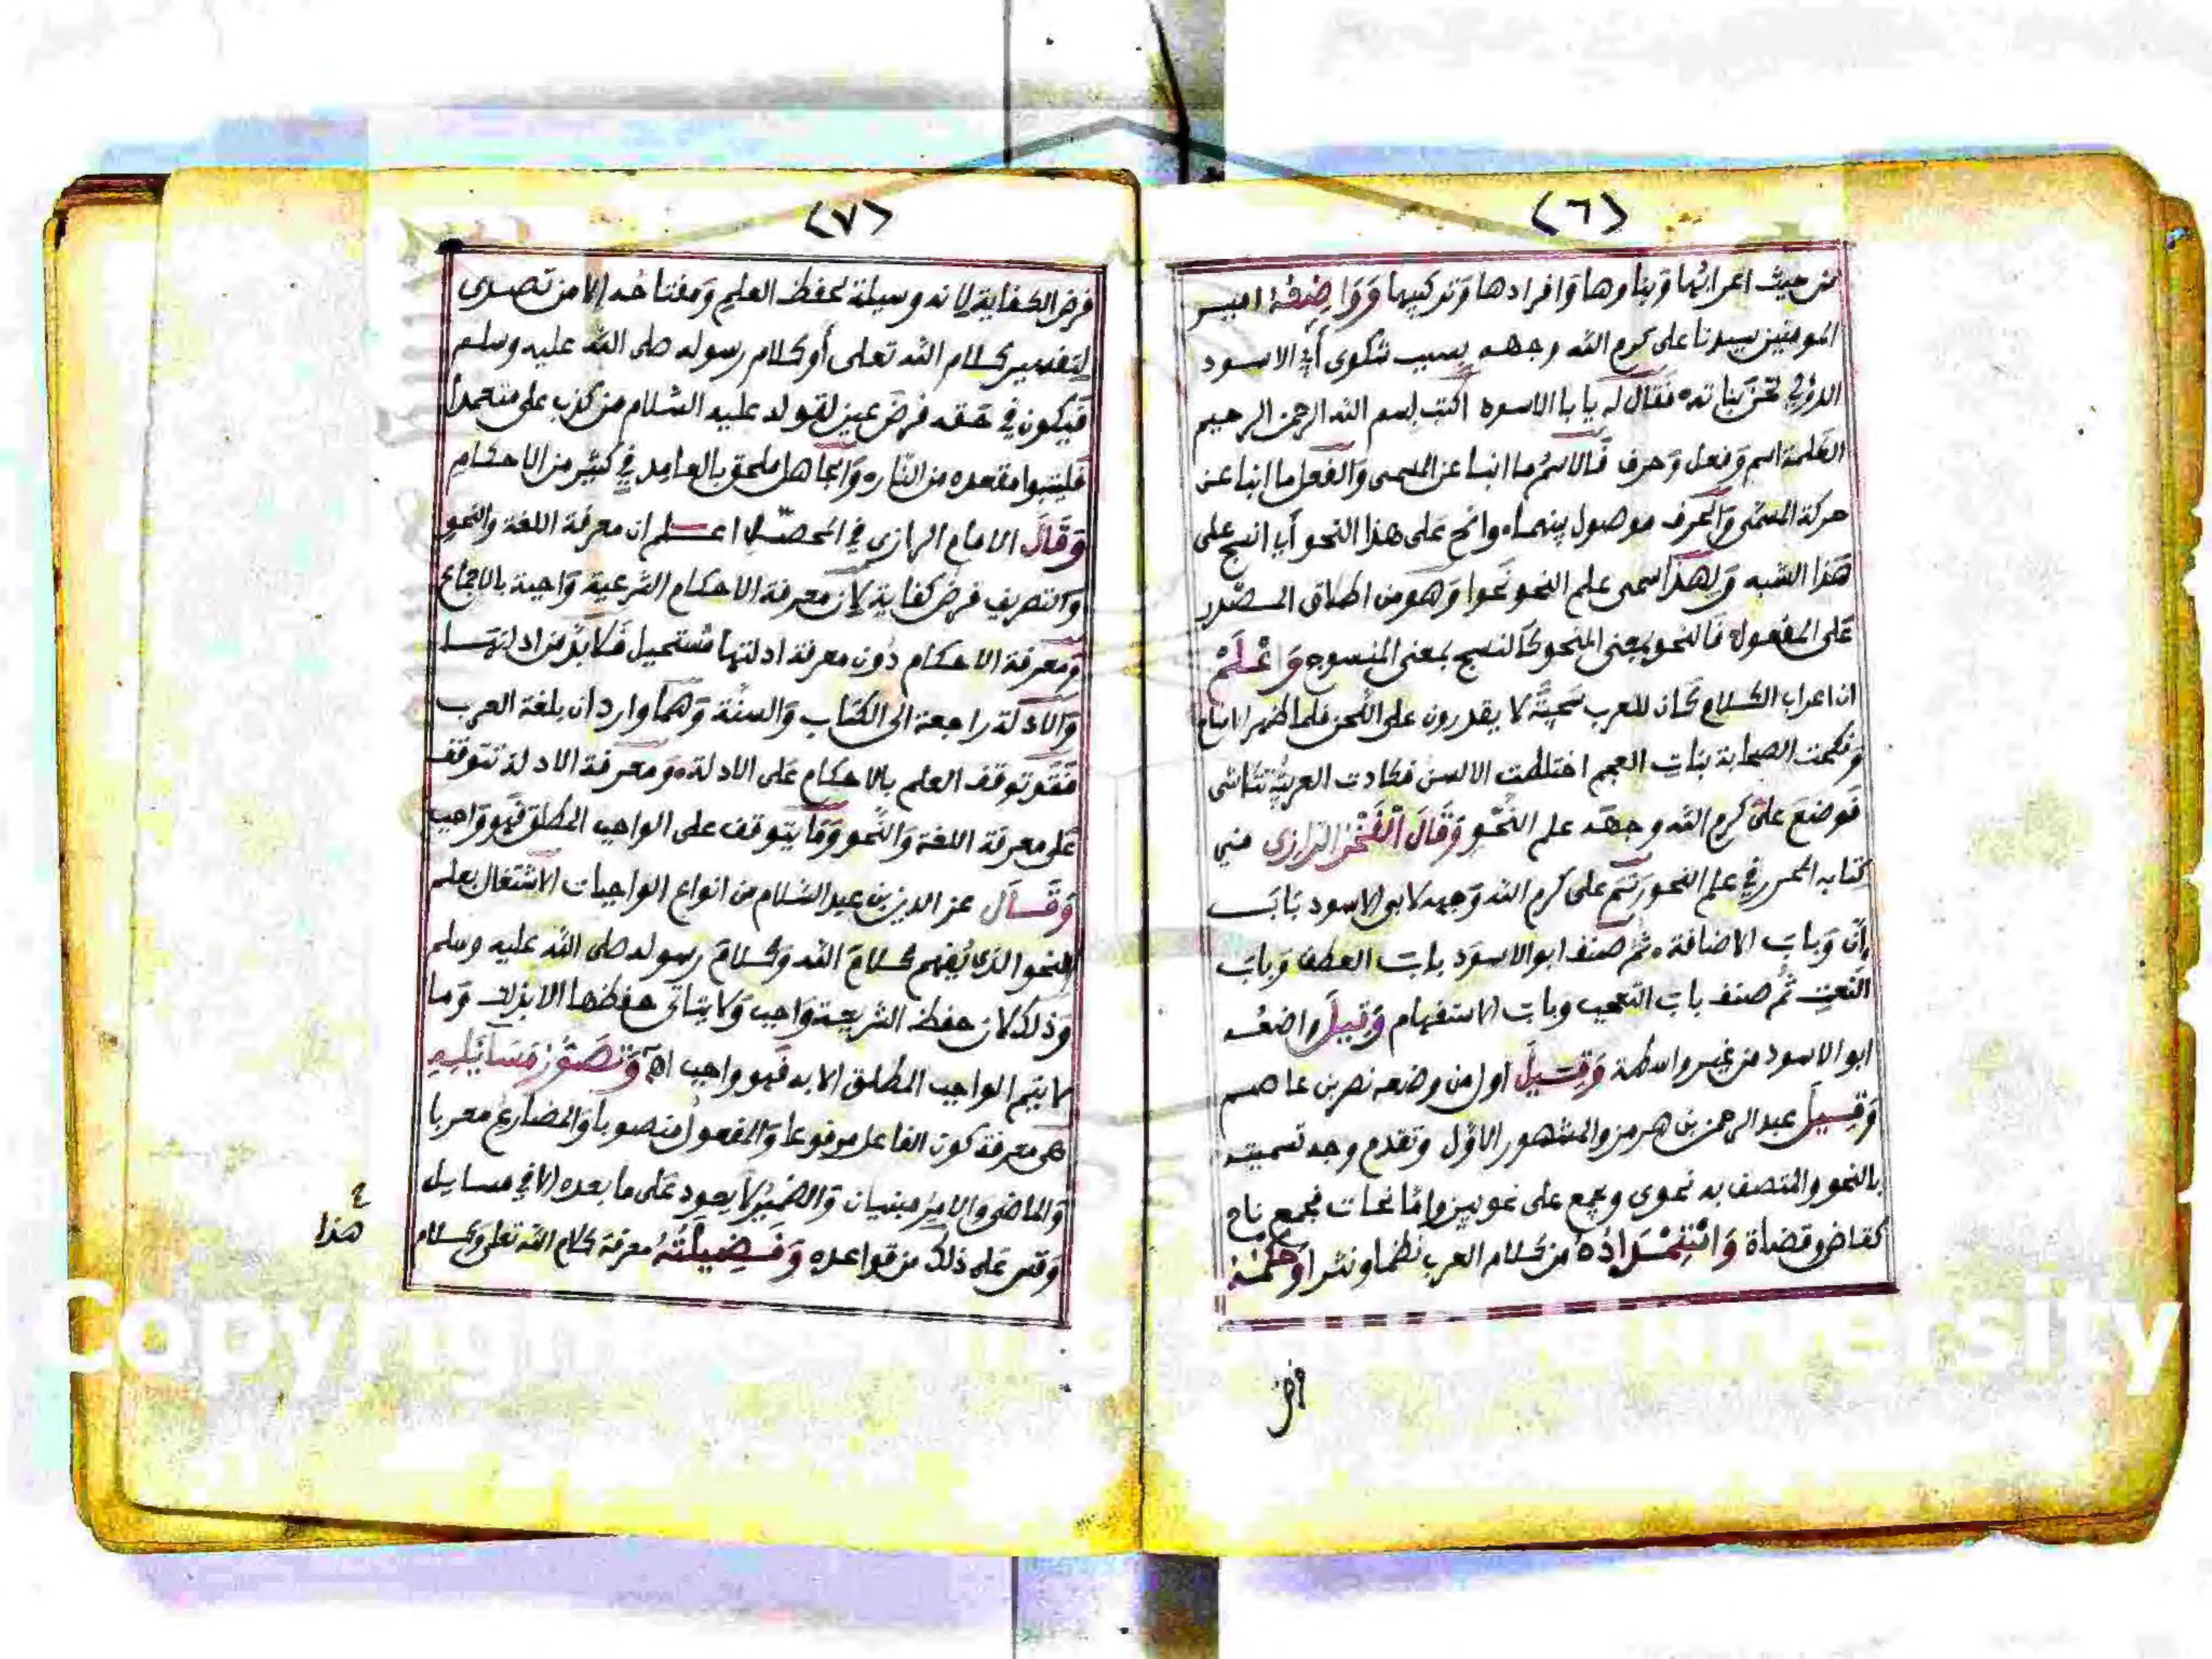 ﴿٦﴾
من حيث اعرابها وبناوها وافرادها وتركيبها وواضعه امير
المومنين سيدنا على كرم الله وجهه بسبب شكوى أبي الاسود
الدؤلي لحن بناته فقال له يا با الاسود اكتب بسم الله الرحمن الرحيم
الكلمة اسم وفعل وحرف فالاسم ما انبا عن المسمى والفعل ما انبا عن
حركة المسمى والحرف موصول بينهما وانح على هذا النحو أي انسج على
هذا الشبه ولهذا سمى علم النحو نحوا وهو من اطلاق المصدر
على المفعول فالنحو بمعنى المنحو كالنسج بمعنى المنسوج واعلم
ان اعراب الكلام كان للعرب سجية لا يقدرون على اللحن فلما ظهر الاسلام
ونكحت الصحابة بنات العجم اختلطت الالسن فكادت العربية تتلاشى
فوضع على كرم الله وجهه علم النحو وقال الفخر الرازي في
كتابه المحرر في علم النحو رسم على كرم الله وجهه لابي الاسود باب
إن وباب الاضافة ثم صنف ابو الاسود باب العطف وباب
النعت ثم صنف باب التعجب وباب الاستفهام وقيل واضعه
ابو الاسود من غير واسطة وقيل اول من وضعه نصر بن عاصم
وقيل عبد الرحمن بن هرمز والمشهور الاول وتقدم وجه تسميته
بالنحو والمتصف به نحوى ويجمع على نحويين واما نحات فجمع ناح
كقاض وقضاة واستمداده من كلام العرب نظما ونثرا وحكمه
فرض
﴿٧﴾
فرض الكفاية لانه وسيلة لحفظ العلم ومفتاحه الا من تصدى
لتفسير كلام الله تعلى أو كلام رسوله صلى الله عليه وسلم
فيكون في حقه فرض عين لقوله عليه السلام من كذب على متعمدا
فليتبوا مقعده من النار والجاهل ملحق بالعامد في كثير من الاحكام
وقال الامام الرازي في المحصل اعلم ان معرفة اللغة والنحو
والتصريف فرض كفاية لان معرفة الاحكام الشرعية واجبة بالاجماع
ومعرفة الاحكام دون معرفة ادلتها مستحيل فلا بد من ادلتها
والادلة راجعة الى الكتاب والسنة وهما واردان بلغة العرب
فقد توقف العلم بالاحكام على الادلة ومعرفة الادلة تتوقف
على معرفة اللغة والنحو وما يتوقف على الواجب المطلق فهو واجب
وقال عز الدين بن عبد السلام من انواع الواجبات الاشتغال بعلم
النحو الذي يفهم كلام الله وكلام رسوله صلى الله عليه وسلم
وذلك لان حفظ الشريعة واجب ولا يتاتى حفظها الا بذلك وما
لا يتم الواجب المطلق الا به فهو واجب اه وتصور مسائله
هى معرفة كون الفاعل مرفوعا والمفعول منصوبا والمضارع معربا
والماضى والامر مبنيان والضمير لا يعود على ما بعده الا في مسايل
وقس على ذلك من قواعده وفضيلته معرفة كلام الله تعلى وكلام
هذا
Copyright © King Saud University